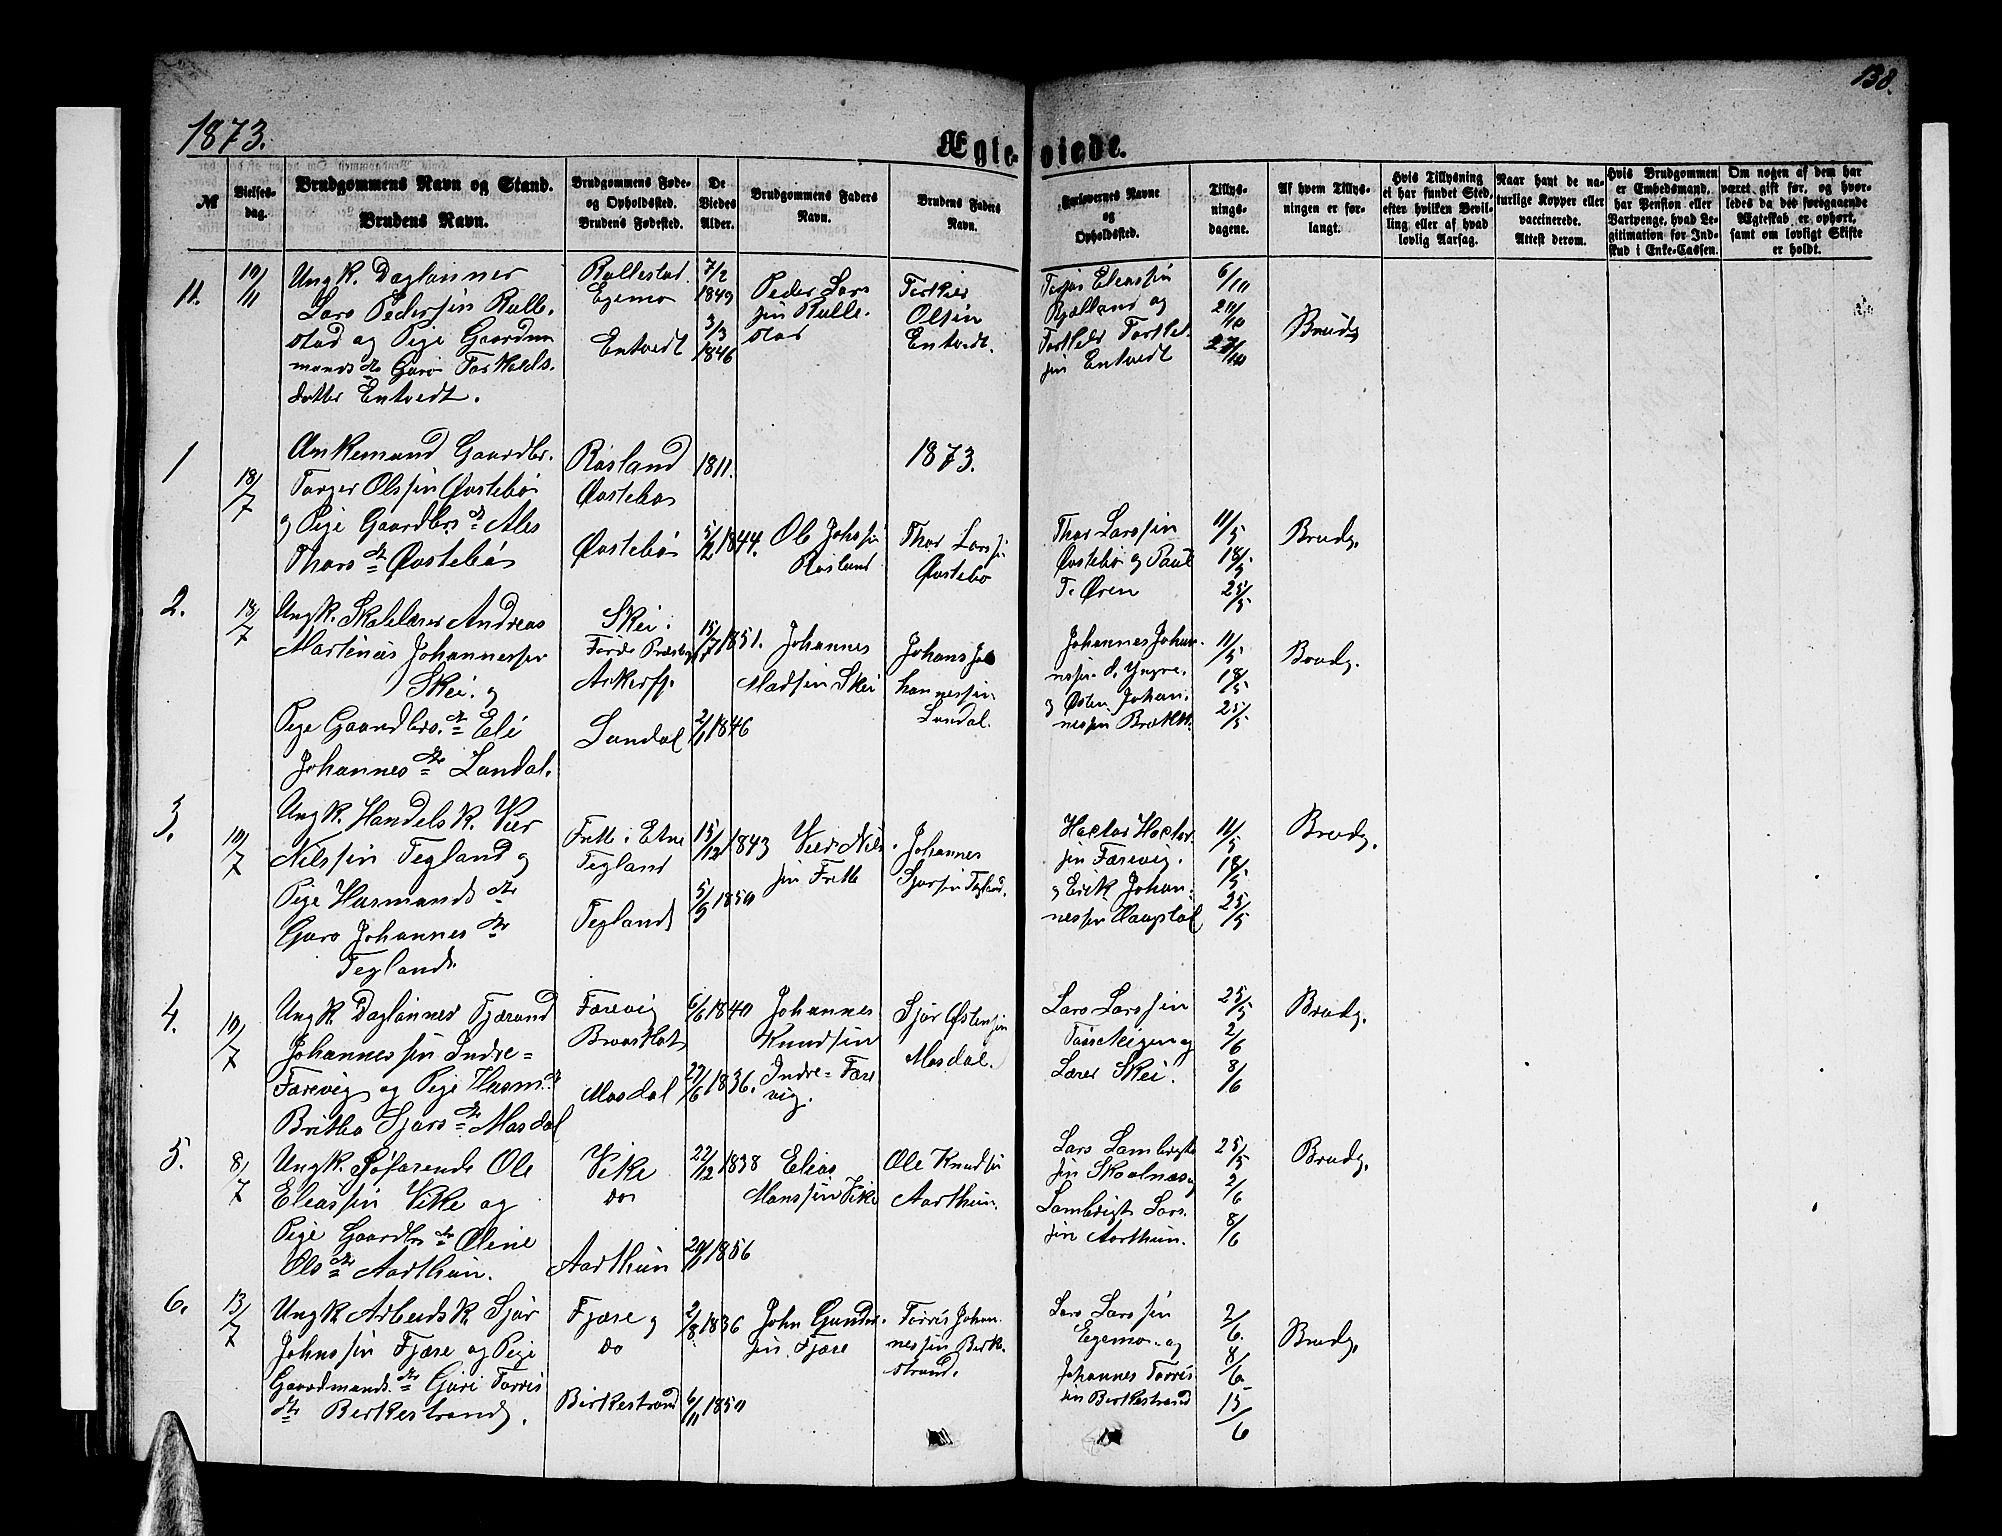 138.
1873.
Ægte-viede.
№
Vielses-
dag.
Brudgommens Navn og Stand.
Brudens Navn.
Brudgommens Føde-
og Opholdssted.
Brudens Fødested.
De
Viedes
Alder.
Brudgommens Faders
Navn.
Brudens Faders
Navn.
Forlovernes Navne
og
Opholdssted.
Tillys-
nings-
dagene.
Af hvem Tillys-
ningen er for-
langt.
Hvis Tillysning
ei har fundet Sted,
efter hvilken Bevil-
ling eller af hvad
lovlig Aarsag.
Naar havt de na-
turlige Kopper eller
vaccinerede.
Attest derom.
Hvis Brudgommen
er Embedsmand,
har Pension eller
Vartpenge, hvad Le-
gitimation for Ind-
skud i Enke-Cassen.
Om nogen af dem har
været gift før, og hvor-
ledes da det foregaaende
Ægteskab er ophørt,
samt om lovligt Skifte
er holdt.
11.
Ungk. Daglønner
Lars Pedersen Rulle-
stad og Pige Gaardm
mands dtr Guro Torkels-
datter Entvedt.
Rullestad
Egemo
Entvedt
7/2
1849
3/3
1846
Peder Lars
sen Rulle-
stad
Torkler
Olsen
Entvedt.
Eleassen
Kjælland og
Entvedt
6/10
20/10
27/10
Brudg
1
18/7
Enkemand Gaardbr.
Torger Olssen Østebø
og Pige Gaardbrs dtr Ales
Thors dtr Østebø
Røsland
Østebø
Østebø
1811.
5/2 1844.
Ole Johs
Røsland
1873.
Thor Larss
Østebø
Thor Larssen
Østebø og Paul
T. Øren
11/5
18/5
25/5
Brudg.
2.
18/7
Ungk. Skolelærer Andreas
Martinus Johannessen
Skei og
Pige Gaardbrs. dtr Eli
Johannes dtr Landal.
Skei
Førde Præstegj
Askerfj.
Landal
15/7 1851.
2/1 1846
Johannes
Madssen Skei
Johans Jo
hannessen
Landal.
Johannes Johan-
nessen d. Yngre
og Østen Johan-
nessen Brekke.
11/5
18/5
25/5
Brudg.
3.
10/7
Ungk. Handelsk. Vier
Nilssen Tegland og
Pige Husmands dtr
Guro Johannes dtr
Tegland.
Frette i Etne
Tegland
Tegland
15/12 1843
5/5 1850
Vier Nils
sen Frette
Johannes
Sjursen Tegland.
Hactor Hactor-
sen Færevig.
og Erik Johan-
nessen
11/5
18/5
25/5
Brudg.
4.
10/7
Ungk. Daglønner Tjærand
Johannessen Indre-
Færevig og Pige Husm. dtr
Britha Sjurs dtr Mosdal
Færevig
Mosdal
6/6 1840
1836.
Johannes
Knudsen
Indre-Fære
vig.
Sjur Østensen
Mosdal.
Lars Larssen
og
Lærer Skei.
25/5
2/6
8/6
Brudg.
5.
8/7
Ungk. Søfarende Ole
Eleassen Vike og
Pige Gaardbs dtr Oline
Ols dtr Aarthun.
Vike
do
Aarthun
22/12 1838
1856
Elias
Monssen Vike
Ole Knudsen
Aarthun.
Lars Lambrigts
sen Skoolnæs og
Lambrigt Lars-
sen Aarthun.
25/5
2/6
8/6
Brudg.
6.
13/7
Ungk. Arbeidsk. Sjur
Johnssen Fjære og Pige
Gaardmands dtr Guri Torris
dtr Birkestrand.
Fjære og
do
Birkestrand
2/8 1836
6/11 1850
John Gunder-
sen Fjære
Torris Johan-
nessen Birke-
strand.
Lars Larssen
Egemo og
Johannes Torris
sen Birkestrand
2/6
8/6
15/6
Brudg.